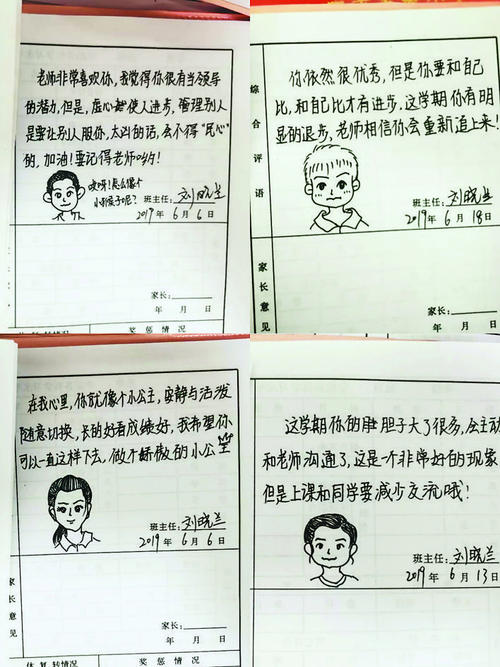 老师非常喜欢你,我觉得你很有当领导
的潜力,但是,虚心使人进步,管理别人
是要让别人服你,太凶的话,会不得"民心"
的,加油!要记得老师哟!
哎呀!怎么像个
小猴子呢?
班主任:刘晓兰
2019年6月6日
家长:
年 月 日
转情况 奖惩情况
综合评语
你依然很优秀,但是你要和自己
比,和自己比才有进步,这学期你有明
显的退步,老师相信你会重新追上来!
班主任:刘晓兰
2019年6月18日
家长意见
家长:
年 月 日
在我心里,你就像个小公主,安静与活泼
随意切换,长的好看成绩好,我希望你
可以一直这样下去,做个骄傲的小公主
班主任:刘晓兰
2019年6月6日
家长意见
家长:
年 月 日
休、复、转情况 奖惩情况
这学期你的胆子大了很多,会主动
和老师沟通了,这是一个非常好的现象
但是上课和同学要减少交流哦!
班主任:刘晓兰
2019年6月13日
家长:
年 月 日